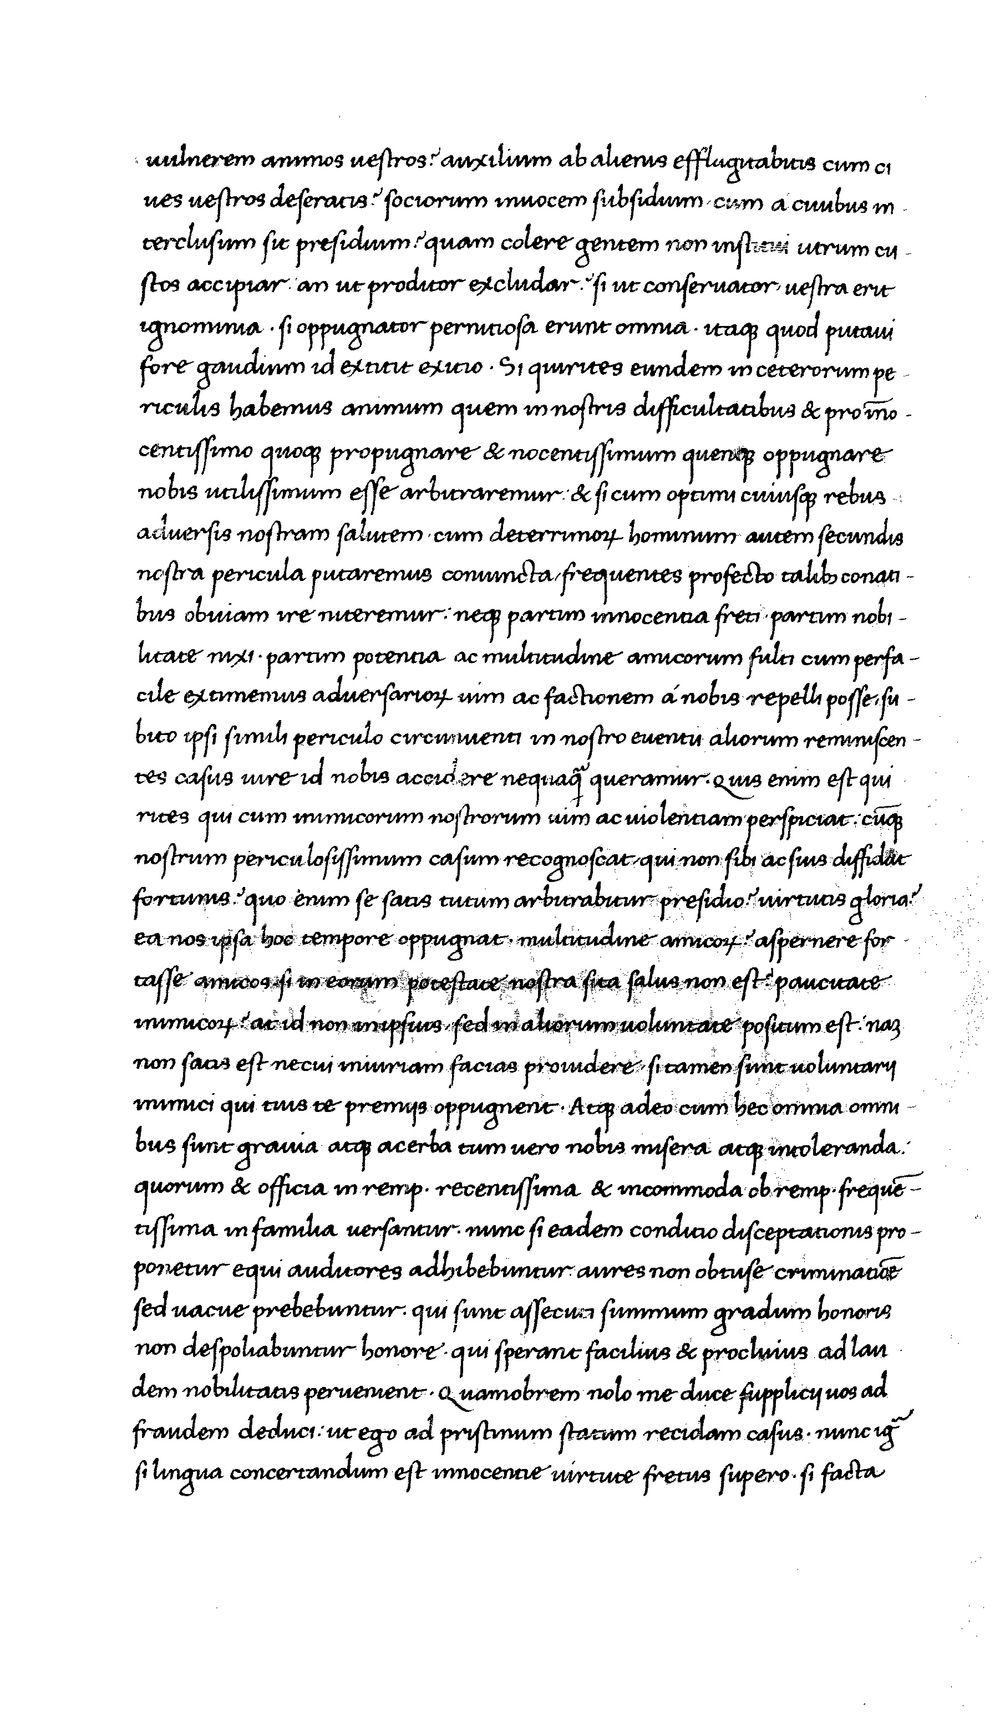 uulnerem animos uestros? auxilium ab alienis efflagitabitis cum ci
ues uestros deseratis? sociorum inuocem subsidium cum a cuiibus in-
terclusum sit presidium? quam colere gentem non institui utrum cu-
stos accipiar an ut proditor excludar? si ut conseruator uestra erit
ignominia · si oppugnator pernitiosa erunt omnia · itaqꝫ quod putaui
fore gaudium id extitit exitio · Si quirites eundem in ceterorum pe-
riculis habemus animum quem in nostris difficultatibus & pro īno-
centissimo quoqꝫ propugnare & nocentissimum quenqꝫ oppugnare
nobis utilissimum esse arbitraremur: & si cum optimi cuiusqꝫ rebus
aduersis nostram salutem · cum deterrimoꝝ hominum autem secundis
nostra pericula putaremus coniuncta / frequentes profecto talibꝫ conati-
bus obuiam ire niteremur: neqꝫ partim innocentia freti · partim nobi-
litate nixi · partim potentia ac multitudine amicorum fulti cum perfa-
cile extimemus aduersarioꝝ uim ac factionem á nobis repelli posse, su-
bito ipsi simili periculo circunuenti in nostro euentu aliorum reminiscen-
tes casus iure id nobis accidere nequaꝗ̄ queramur. Quis enim est qui
rites qui cum inimicorum nostrorum uim ac uiolentiam perspiciat: cūqꝫ
nostrum periculosissimum casum recognoscat, qui non sibi ac suis diffidat
fortunis? quo enim se satis tutum arbitrabitur presidio? uirtutis gloria?
ea nos ipsa hoc tempore oppugnat · multitudine amicoꝝ? aspernere for
tasse amicos si in eorum potestate nostra sita salus non est? paucitate
inimicoꝝ? at id non in ipsius, sed in aliorum uoluntate positum est: naꝫ
non satis est necui iniuriam facias prouidere, si tamen sunt uoluntarij
inimici qui tuis te premijs oppugnent · Atqꝫ adeo cum hec omnia omni-
bus sunt grauia atqꝫ acerba tum uero nobis misera atqꝫ intoleranda:
quorum & officia in remp. recentissima & incommoda ob remp. frequē-
tissima in familia uersantur. nunc si eadem conditio disceptationis pro-
ponetur equi auditores adhibebuntur. aures non obtuse criminatiōe
sed uacue prebebuntur. qui sunt assecuti summum gradum honoris
non despoliabuntur honore · qui sperant facilius & procliuius ad lau
dem nobilitatis peruenient · Quamobrem nolo me duce supplicij uos ad
fraudem deduci: ut ego ad pristinum statum recidam casus · nunc igr̄
si lingua concertandum est innocentie uirtute fretus supero · si facta